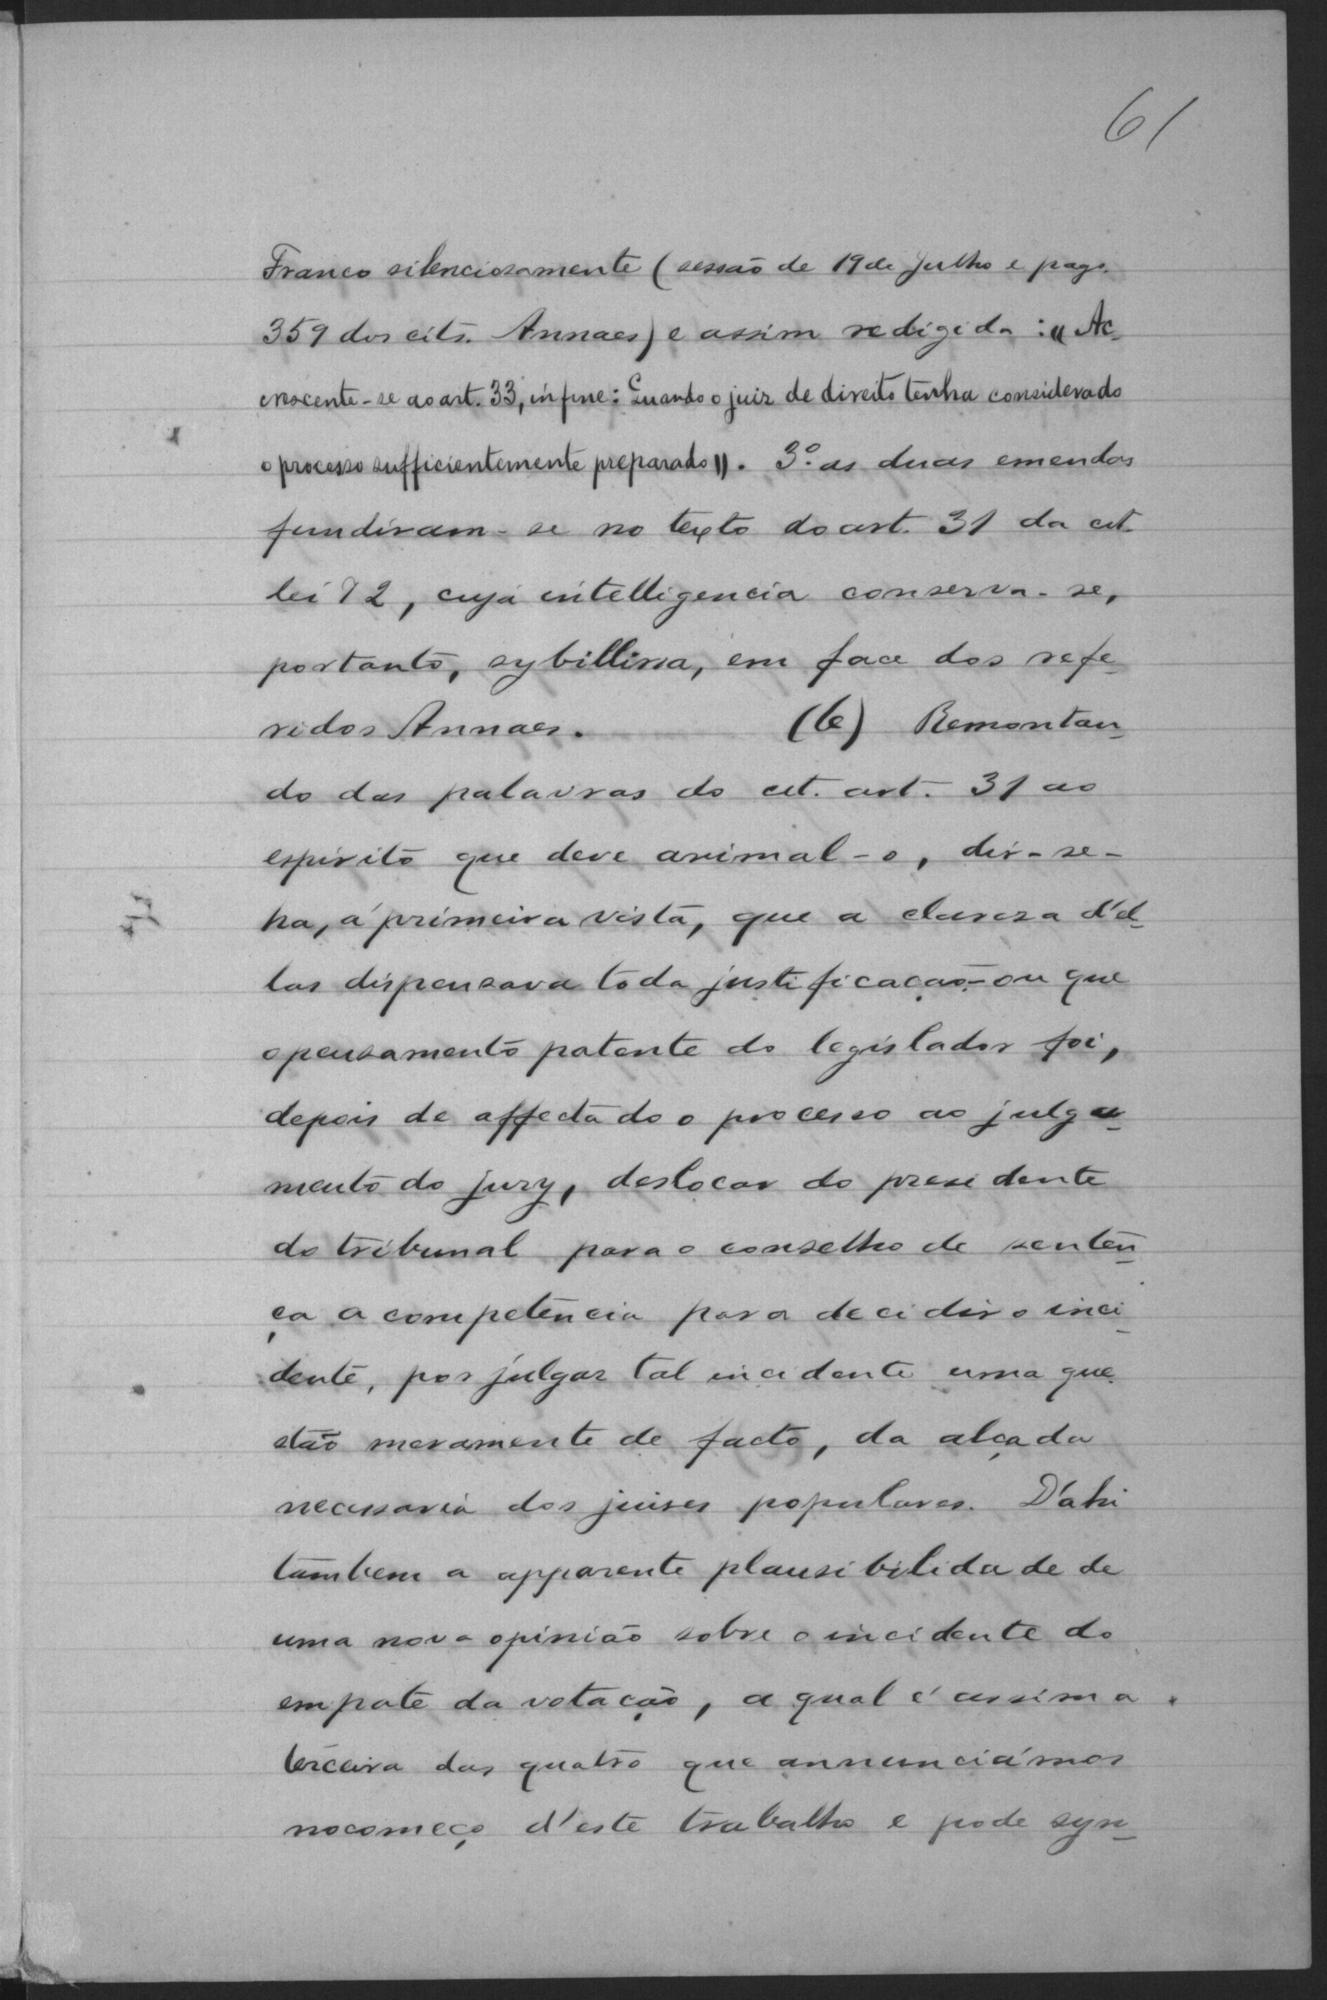 61
Franco silenciosamente (sessão de 19 de Julho e pags.
359 dos cits. Annaes) e assim redigida: "Ac-
crescente-se ao art. 33, in fine: Quando o juiz de direito tenha considerado
o processo sufficientemente preparado". 3º as duas emendas
fundiram-se no texto do art. 31 da cit.
lei 72, cuja intelligencia conserva-se,
portanto, sybillina, em face dos refe-
ridos Annaes. (b) Remontan-
do das palavras do cit. art. 31 ao
espirito que deve animal-o, dir-se-
ha, á primeira vista, que a clareza d'el-
las dispensava toda justificação - ou que
o pensamento patente do legislador foi,
depois de affectado o processo ao julga-
mento do jury, deslocar do presidente
do tribunal para o conselho de senten-
ça a competencia para decidir o inci-
dente, por julgar tal incidente uma que-
stão meramente de facto, da alçada
necessaria dos juises populares. D'ahi
tambem a apparente plausibilidade de
uma nova opinião sobre o incidente do
empate da votação, a qual é assim a
terceira das quatro que annunciámos
no começo d'este trabalho e pode syn-